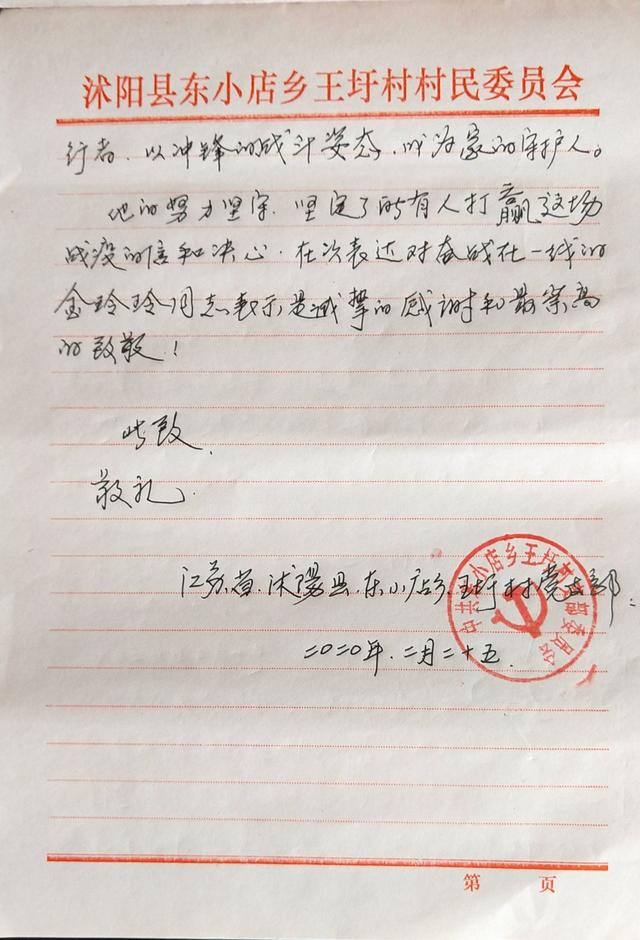 沭阳县东小店乡王圩村村民委员会
行者、以冲锋的战斗姿态、成为家的守护人。
他的努力坚守、坚定了所有人打赢这场
战疫的信和决心、在次表达对奋战在一线的
金玲玲同志表示是诚挚的感谢和最崇高
的致敬！
此致、
敬礼、
江苏省、沭阳县、东小店乡、王圩村党支部
中共东小店乡王圩村支部委员会
二0二0年、二月二十五、
第 页